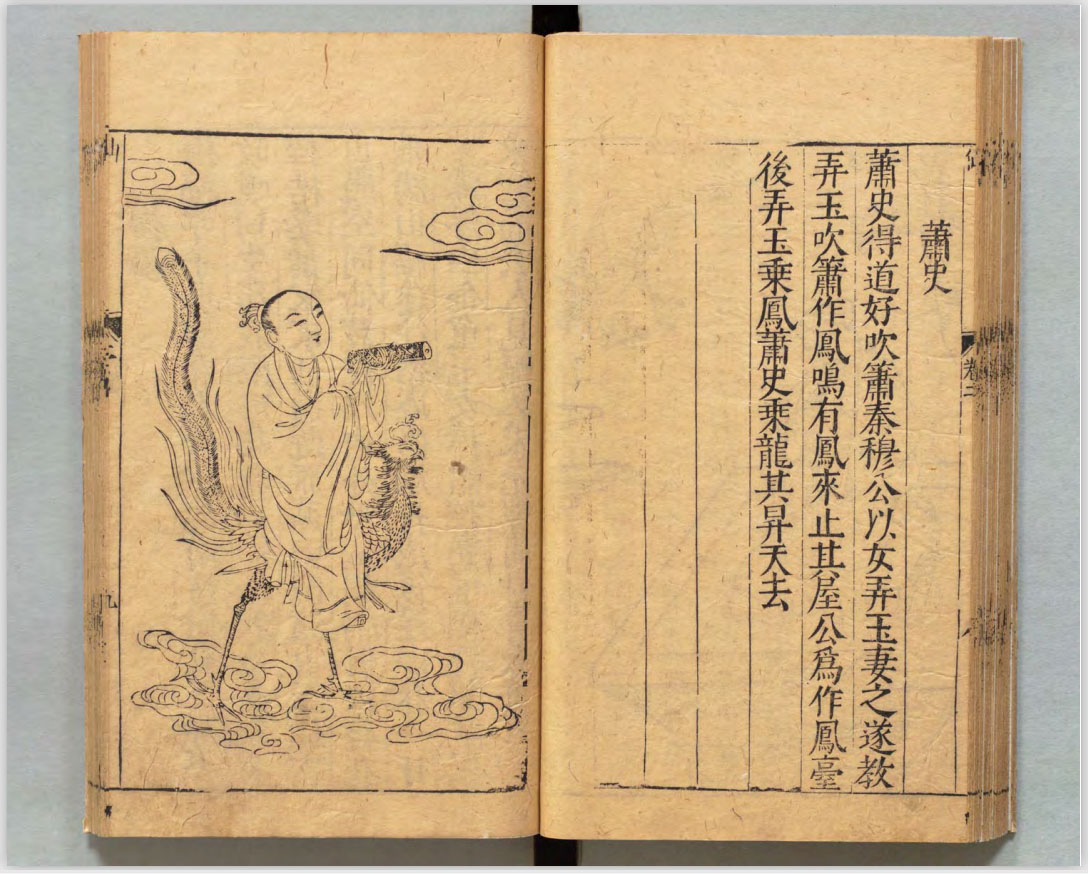 蕭史
蕭史得道好吹簫秦穆公以女弄玉妻之遂教
弄玉吹簫作鳳鳴有鳳來止其屋公爲作鳳臺
後弄玉乘鳳蕭史乘龍其昇天去
卷二